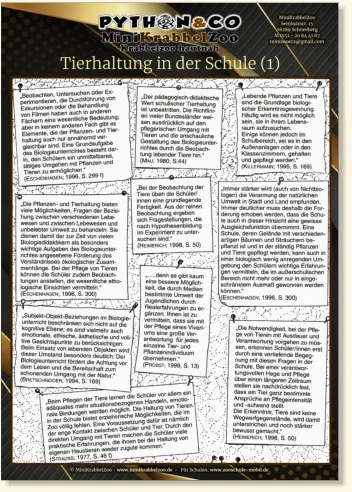 PYTHON&CO
MiniKrabbelZoo
Krabbelzoo hautnah
MiniKrabbelZoo
Tierhaltung in der Schule (1)
„Beobachten, Untersuchen oder Ex-
perimentieren, die Durchführung von
Exkursionen oder die Behandlung
von Filmen haben auch in anderen
Fächern eine wesentliche Bedeutung;
aber in keinem anderen Fach gibt es
Elemente, die der Pflanzen- und Tier-
haltung auch nur annähernd ver-
gleichbar sind. Eine Grundaufgabe
des Biologieunterrichtes besteht dar-
in, den Schülern ein unmittelbares,
tätiges Umgehen mit Pflanzen und
Tieren zu ermöglichen."
(ESCHENHAGEN; 1996, S. 299 f)
„Der pädagogisch-didaktische
Wert schulischer Tierhaltung
ist unbestritten. Die Richtlini-
en vieler Bundesländer wei-
sen ausdrücklich auf den
pflegerischen Umgang mit
Tieren und die anschauliche
Gestaltung des Biologieunter-
richtes durch die Beobach-
tung lebender Tiere hin."
(MAU; 1980, S.44)
„Lebende Pflanzen und Tiere
sind die Grundlage biologi-
scher Erkenntnisgewinnung.
Häufig wird es nicht möglich
sein, sie in ihrem Lebens-
raum aufzusuchen.
Einige können jedoch im
Schulbereich, sei es in den
Außenanlagen oder in den
Klassenzimmern, gehalten
und gepflegt werden."
(KILLERMANN; 1995, S. 169)
„Die Pflanzen- und Tierhaltung bieten
viele Möglichkeiten, Fragen der Bezie-
hung zwischen verschiedenen Lebe-
wesen und zwischen Lebewesen und
unbelebter Umwelt zu behandeln. Sie
dienen damit der zur Zeit von vielen
Biologiedidaktikern als besonders
wichtige Aufgabe des Biologieunter-
richtes angesehene Förderung des
Verständnisses ökologischer Zusam-
menhänge. Bei der Pflege von Tieren
können die Schüler zudem Beobach-
tungen anstellen, die wesentliche etho-
logische Einsichten vermitteln."
(ESCHENHAGEN; 1996, S. 300)
„Bei der Beobachtung der
Tiere üben die Schüler/
innen eine grundlegende
Fertigkeit. Aus der reinen
Beobachtung ergeben
sich Fragestellungen, die
nach Hypothesenbildung
im Experiment zu unter-
suchen sind."
(HEIMERICH; 1998, S. 50)
„Immer stärker wird (auch von Nichtbio-
logen) die Verarmung der natürlichen
Umwelt in Stadt und Land empfunden.
Immer deutlicher muss deshalb die For-
derung erhoben werden, dass die Schu-
le auch in dieser Hinsicht eine gewisse
Ausgleichsfunktion übernimmt. Eine
Schule, deren Gelände mit verschieden-
artigen Bäumen und Sträuchern be-
pflanzt ist und in der ständig Pflanzen
und Tiere gepflegt werden, kann auch in
einer biologisch wenig anregenden Um-
gebung den Schülern wichtige Erfahrun-
gen vermitteln, die im außerschulischen
Bereich nicht mehr oder nur in einge-
schränktem Ausmaß gewonnen werden
können."
(ESCHENHAGEN; 1996, S. 300)
„...denn es gibt kaum
eine bessere Möglich-
keit, die durch Medien
bestimmte Umwelt der
Jugendlichen durch
Realerfahrungen zu er-
gänzen. Ihnen ist zu
vermitteln, dass sie mit
der Pflege eines Vivari-
ums eine große Ver-
antwortung für jedes
einzelne Tier- und
Pflanzenindividuum
übernehmen."
(PROBST; 1999, S. 13)
„Subjekt-Objekt-Beziehungen im Biologie-
unterricht beschränken sich nicht auf die
kognitive Ebene; es sind vielmehr auch
emotionale, ethische, ästhetische und voli-
tive Gesichtspunkte zu berücksichtigen.
Beim Einsatz von lebenden Objekten wird
dieser Umstand besonders deutlich: Der
Biologieunterricht fördert die Achtung vor
dem Leben und die Bereitschaft zum
schonenden Umgang mit der Natur."
(BRETSCHNEIDER; 1994, S. 169)
„Die Notwendigkeit, bei der Pfle-
ge von Tieren mit Ausdauer und
Verantwortung vorgehen zu müs-
sen, erkennen Schüler/innen erst
durch eine vertiefende Begeg-
nung mit diesen Fragen in der
Schule. Bei einer verantwor-
tungsvollen Hege und Pflege
über einen längeren Zeitraum
stellen sie nachdrücklich fest,
dass ein Tier ganz bestimmte
Ansprüche an Pflegeintensität
und -aufwand stellt.
Die Erkenntnis, Tiere sind keine
Wegwerfgegenstände, wird damit
unterstrichen und noch stärker
bewusst gemacht."
(HEIMERICH; 1998, S. 50)
„Beim Pflegen der Tiere lernen die Schüler vor allem ein
adäquates, relativ situationsbezogenes Handeln, emotio-
nale Bindungen werden möglich. Die Haltung von Tieren
in der Schule bietet erzieherische Möglichkeiten, die im
Zoo völlig fehlen. Eine Voraussetzung dafür ist nämlich
der enge Kontakt zwischen Schüler und Tier. Durch den
direkten Umgang mit Tieren machen die Schüler viele
praktische Erfahrungen, die ihnen bei der Haltung von
eigenen Haustieren wieder zugute kommen."
(STRAUSS; 1977, S. 46 f)
© MiniKrabbelZoo - www.minikrabbelzoo.de - Für Schulen: www.zooschule-mobil.de